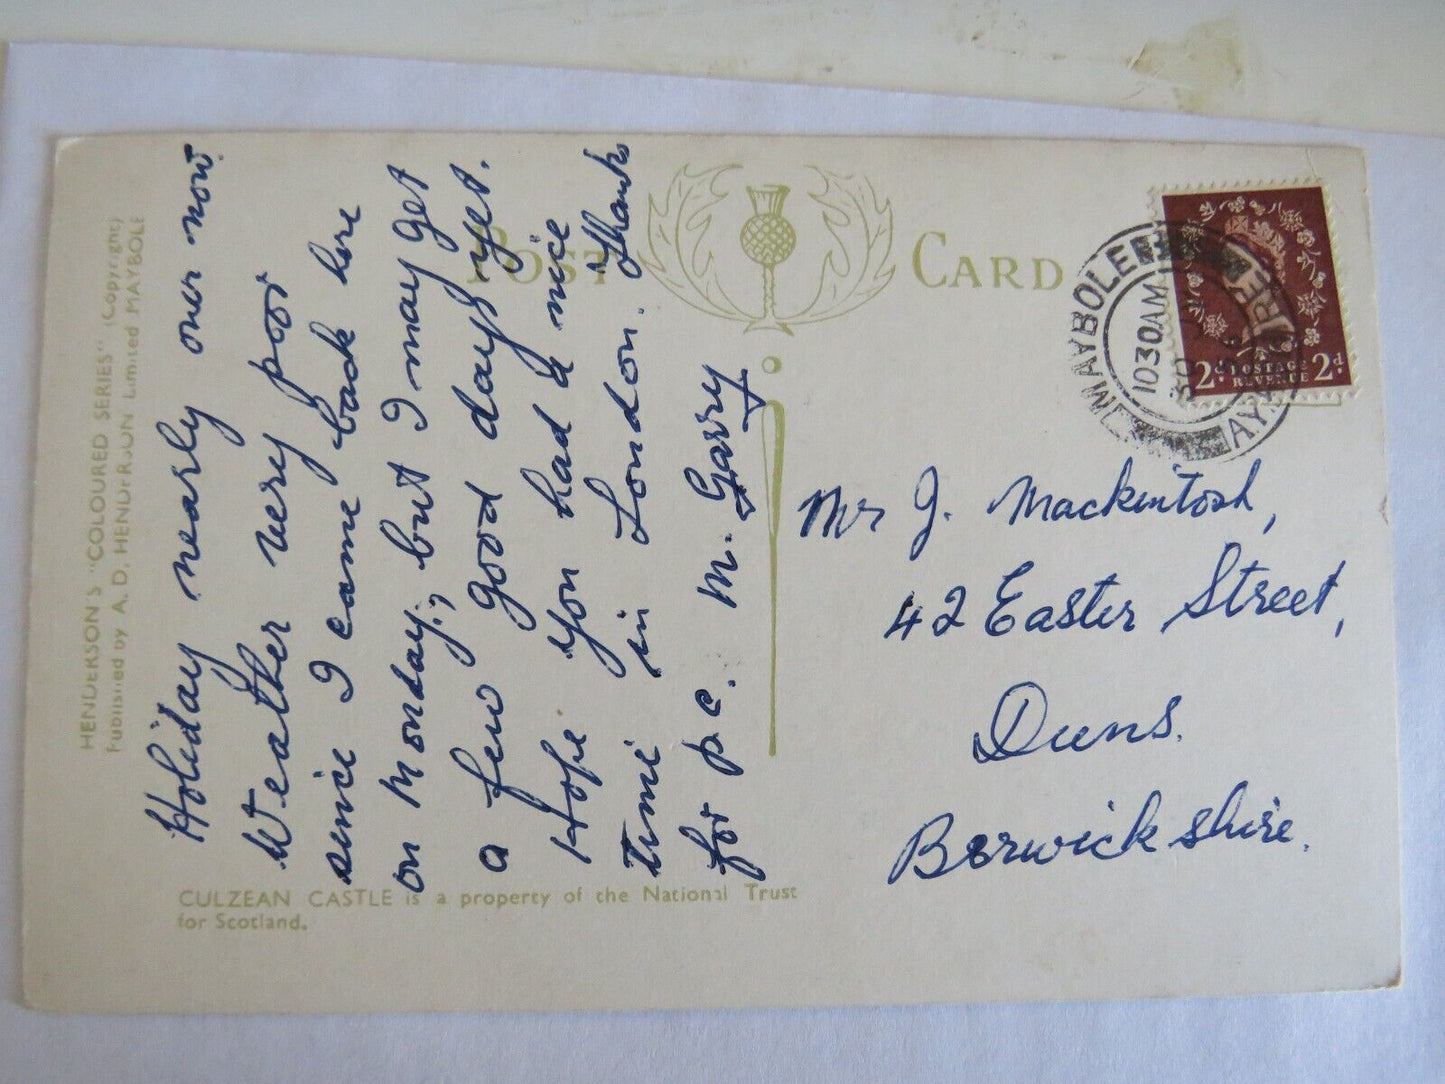 HENDERSON'S "COLOURED SERIES" (Copyright)
Published by A. D. HENDERSON Limited MAYBOLE
POST CARD
Holiday nearly over now.
Weather very poor
since I came back here
on Monday, but I may get
a few good days yet.
Hope you had a nice
time in London. Thanks
for p.c. M. Garry
CULZEAN CASTLE is a property of the National Trust
for Scotland.
MAYBOLE
1030AM
2d POSTAGE REVENUE 2d
Mr J. Mackintosh,
42 Easter Street,
Duns.
Berwickshire.